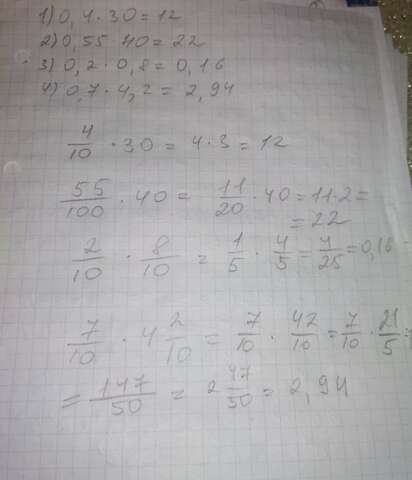 1) 0,4 · 30 = 12
2) 0,55 · 40 = 22
3) 0,2 · 0,8 = 0,16
4) 0,7 · 4,2 = 2,94
4/10 · 30 = 4 · 3 = 12
55/100 · 40 = 11/20 · 40 = 11 · 2 =
= 22
2/10 · 8/10 = 1/5 · 4/5 = 4/25 = 0,16
7/10 · 4 2/10 = 7/10 · 42/10 = 7/10 · 21/5 =
= 147/50 = 2 47/50 = 2,94